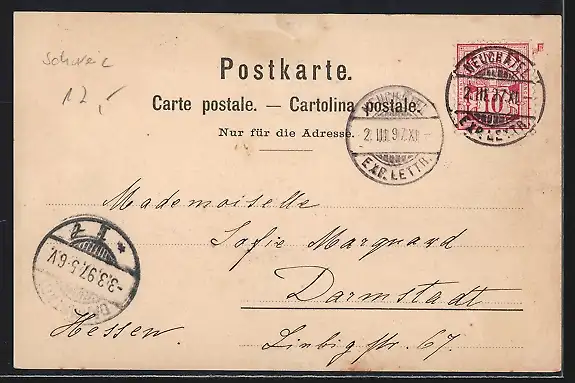 Schweiz
12,-
Postkarte.
Carte postale. — Cartolina postale.
Nur für die Adresse.
NEUCHATEL
2.III.97.XI
EXP. LETTR.
NEUCHATEL
2.III.97.XI-
EXP. LETTR.
10
Mademoiselle
Sofie Marguard
Darmstadt
Hessen.
Liebig str. 67.
-3.3.97.5-6V.